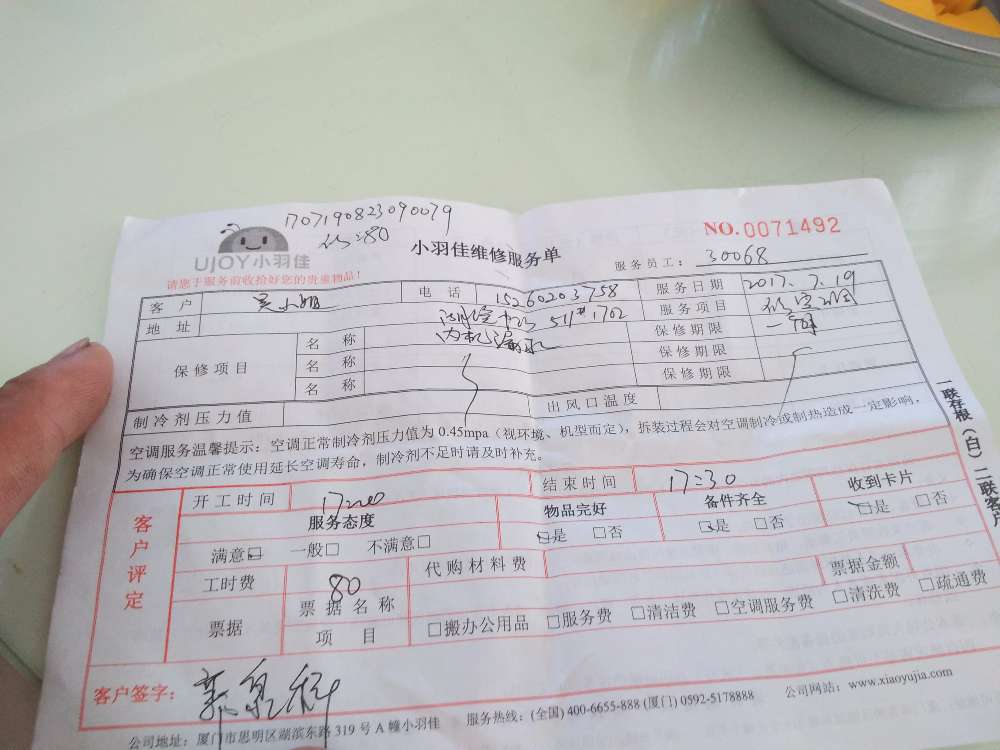 1707190823090079
80
UJOY小羽佳
小羽佳维修服务单
NO.0071492
请您于服务前收拾好您的贵重物品!
服务员工: 30068
客户 吴小姐 电话 15260203758 服务日期 2017.7.19
地址 511# 1702 服务项目
保修项目 名称 内机漏水 保修期限
名称 保修期限
名称 保修期限
制冷剂压力值 出风口温度
空调服务温馨提示:空调正常制冷剂压力值为 0.45mpa(视环境、机型而定),拆装过程会对空调制冷或制热造成一定影响,
为确保空调正常使用延长空调寿命,制冷剂不足时请及时补充。
一联存根(白)二联客户
客户评定
开工时间 17:00 结束时间 17:30
服务态度 物品完好 备件齐全 收到卡片
满意□ 一般□ 不满意□ □是 □否 □是 □否 □是 □否
工时费 80 代购材料费 票据金额
票据 票据名称
项目 □搬办公用品 □服务费 □清洁费 □空调服务费 □清洗费 □疏通费
客户签字:
公司地址:厦门市思明区湖滨东路 319 号 A 幢小羽佳 服务热线:(全国) 400-6655-888 (厦门) 0592-5178888 公司网站:www.xiaoyujia.com